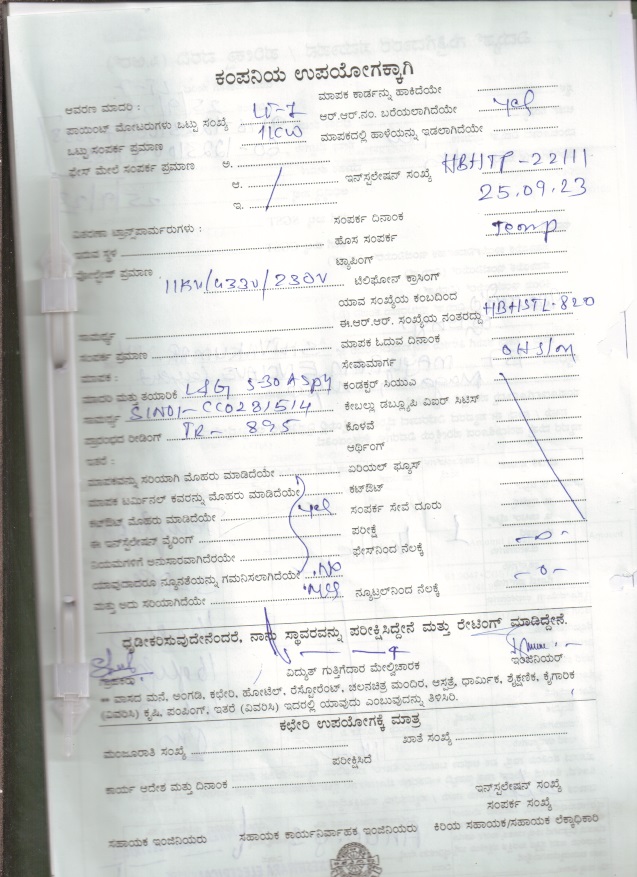 ಕಂಪನಿಯ ಉಪಯೋಗಕ್ಕಾಗಿ
ಆವರಣ ಮಾದರಿ : LT-7 ಮಾಪಕ ಕಾರ್ಡನ್ನು ಹಾಕಿದೆಯೇ
ಪಾಯಿಂಟ್ ಮೋಟರುಗಳು ಒಟ್ಟು ಸಂಖ್ಯೆ 11KW ಆರ್.ಆರ್.ನಂ. ಬರೆಯಲಾಗಿದೆಯೇ yes
ಒಟ್ಟು ಸಂಪರ್ಕ ಪ್ರಮಾಣ ಮಾಪಕದಲ್ಲಿ ಹಾಳೆಯನ್ನು ಇಡಲಾಗಿದೆಯೇ
ಫೇಸ್ ಮೇಲೆ ಸಂಪರ್ಕ ಪ್ರಮಾಣ ಅ.
ಆ. ಇನ್‌ಸ್ಟಲೇಷನ್ ಸಂಖ್ಯೆ HBHTP-22111
ಇ. 25.09.23
ವಿತರಣಾ ಟ್ರಾನ್ಸ್‌ಫಾರ್ಮರುಗಳು : ಸಂಪರ್ಕ ದಿನಾಂಕ
ಇರುವ ಸ್ಥಳ ಹೊಸ ಸಂಪರ್ಕ Temp
ವೋಲ್ಟೇಜ್ ಪ್ರಮಾಣ 11KV/433V/230V ಟ್ಯಾಪಿಂಗ್
ಟೆಲಿಫೋನ್ ಕ್ರಾಸಿಂಗ್
ಯಾವ ಸಂಖ್ಯೆಯ ಕಂಬದಿಂದ
ಈ.ಆರ್.ಆರ್. ಸಂಖ್ಯೆಯ ನಂತರದ್ದು HBHSTL-820
ಸಾಮರ್ಥ್ಯ ಮಾಪಕ ಓದುವ ದಿನಾಂಕ
ಸಂಪರ್ಕ ಪ್ರಮಾಣ ಸೇವಾಮಾರ್ಗ OHS/M
ಮಾಪಕ :
ಮಾದರಿ ಮತ್ತು ತಯಾರಿಕೆ L&G 5-30A ಕಂಡಕ್ಟರ್ ಸಿಯುಎ
ಸಾಮರ್ಥ್ಯ SINO1-CC0281514 ಕೇಬಲ್ಲು ಡಬ್ಲ್ಯೂಪಿ ವಿಐಆರ್ ಸಿಟಿಸ್
ಪ್ರಾರಂಭದ ರೀಡಿಂಗ್ IR- 895 ಕೊಳವೆ
ಇತರೆ : ಅರ್ಥಿಂಗ್
ಮಾಪಕವನ್ನು ಸರಿಯಾಗಿ ಮೊಹರು ಮಾಡಿದೆಯೇ ಏರಿಯಲ್ ಫ್ಯೂಸ್
ಮಾಪಕ ಟರ್ಮಿನಲ್ ಕವರನ್ನು ಮೊಹರು ಮಾಡಿದೆಯೇ ಕಟ್‌ಔಟ್
ಕಟ್‌ಔಟ್ ಮೊಹರು ಮಾಡಿದೆಯೇ yes ಸಂಪರ್ಕ ಸೇವೆ ದೂರು
ಈ ಇನ್‌ಸ್ಟಲೇಷನ್ ವೈರಿಂಗ್ ಪರೀಕ್ಷೆ
ನಿಯಮಗಳಿಗೆ ಅನುಸಾರವಾಗಿದೆರಯೇ ಫೇಸ್‌ನಿಂದ ನೆಲಕ್ಕೆ -0-
ಯಾವುದಾದರೂ ನ್ಯೂನತೆಯನ್ನು ಗಮನಿಸಲಾಗಿದೆಯೇ NO
ಮತ್ತು ಅದು ಸರಿಯಾಗಿದೆಯೇ yes ನ್ಯೂಟ್ರಲ್‌ನಿಂದ ನೆಲಕ್ಕೆ -0-
ಧೃಡೀಕರಿಸುವುದೇನೆಂದರೆ, ನಾನು ಸ್ಥಾವರವನ್ನು ಪರೀಕ್ಷಿಸಿದ್ದೇನೆ ಮತ್ತು ರೇಟಿಂಗ್ ಮಾಡಿದ್ದೇನೆ.
ಗ್ರಾಹಕರು ವಿದ್ಯುತ್ ಗುತ್ತಿಗೆದಾರ ಮೇಲ್ವಿಚಾರಕ ಇಂಜಿನಿಯರ್
** ವಾಸದ ಮನೆ, ಅಂಗಡಿ, ಕಛೇರಿ, ಹೋಟೆಲ್, ರೆಸ್ಟೋರೆಂಟ್, ಚಲನಚಿತ್ರ ಮಂದಿರ, ಆಸ್ಪತ್ರೆ, ಧಾರ್ಮಿಕ, ಶೈಕ್ಷಣಿಕ, ಕೈಗಾರಿಕ
(ವಿವರಿಸಿ) ಕೃಷಿ, ಪಂಪಿಂಗ್, ಇತರೆ (ವಿವರಿಸಿ) ಇದರಲ್ಲಿ ಯಾವುದು ಎಂಬುವುದನ್ನು ತಿಳಿಸಿರಿ.
ಕಛೇರಿ ಉಪಯೋಗಕ್ಕೆ ಮಾತ್ರ
ಮಂಜೂರಾತಿ ಸಂಖ್ಯೆ ಖಾತೆ ಸಂಖ್ಯೆ
ಪರೀಕ್ಷಿಸಿದೆ
ಕಾರ್ಯ ಆದೇಶ ಮತ್ತು ದಿನಾಂಕ
ಇನ್‌ಸ್ಟಲೇಷನ್ ಸಂಖ್ಯೆ
ಸಂಪರ್ಕ ಸಂಖ್ಯೆ
ಸಹಾಯಕ ಇಂಜಿನಿಯರು ಸಹಾಯಕ ಕಾರ್ಯನಿರ್ವಾಹಕ ಇಂಜಿನಿಯರು ಕಿರಿಯ ಸಹಾಯಕ/ಸಹಾಯಕ ಲೆಕ್ಕಾಧಿಕಾರಿ